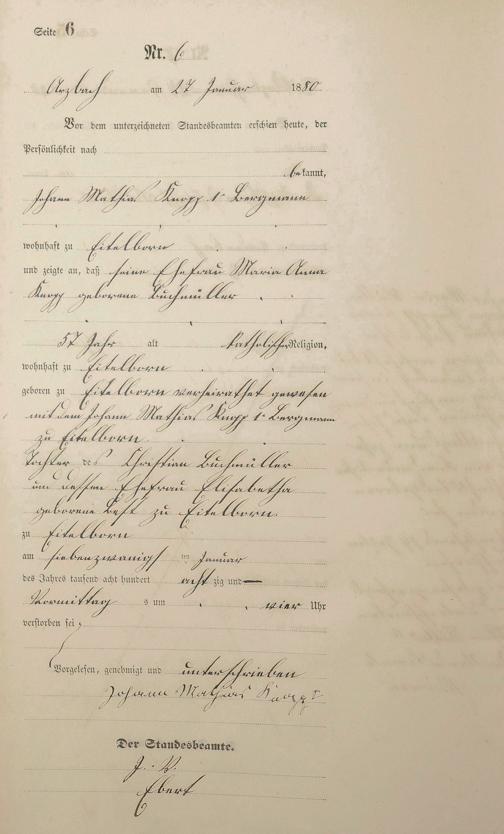 Seite 6
Nr. 6
Arzbach am 27 Januar 1880
Vor dem unterzeichneten Standesbeamten erschien heute, der
Persönlichkeit nach
bekannt,
Johann Mathias Knopp 1r Bergmann
wohnhaft zu Eitelborn
und zeigte an, daß seine Ehefrau Maria Anna
Knopp geborene Buchmüller
57 Jahr alt katholischer Religion,
wohnhaft zu Eitelborn
geboren zu Eitelborn verheirathet gewesen
mit dem Johann Mathias Knopp 1r Bergmann
zu Eitelborn
Tochter des Christian Buchmüller
und dessen Ehefrau Elisabetha
geborene Best zu Eitelborn
zu Eitelborn
am siebenzwanigst ten Januar
des Jahres tausend acht hundert achtzig und —
Vormittags um vier Uhr
verstorben sei;
Vorgelesen, genehmigt und unterschrieben
Johann Mathias Knopp 1r
Der Standesbeamte.
J. V.
Ebert